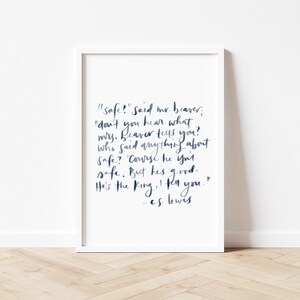 "safe?" said mr beaver;
"don't you hear what
mrs. beaver tells you?
Who said anything about
safe? 'Course he isn't
safe. But he's good.
He's the King, I tell you."
- c.s. lewis